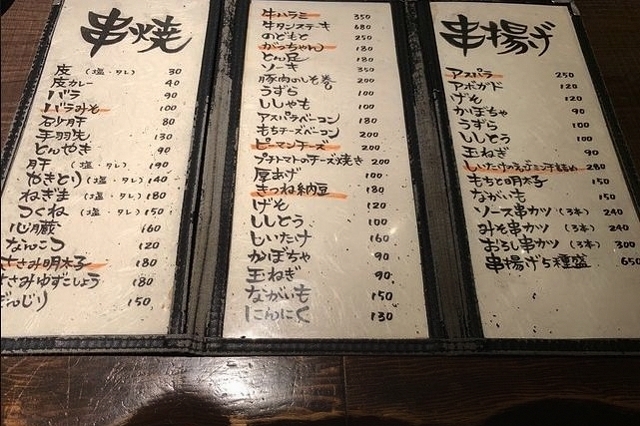 串焼
皮 (塩・タレ) 30
皮カレー 40
バラ 90
バラみそ 100
砂肝 80
手羽先 130
とんやき 90
肝 (塩・タレ) 190
やきとり (塩・タレ) 140
ねぎま (塩・タレ) 180
つくね (塩・タレ) 150
心臓 160
なんこつ 120
ささみ明太子 180
ささみゆずこしょう 180
ぼんじり 150
牛ハラミ 350
牛タンステーキ 680
のどもと 250
がっちゃん 180
とん足 180
ソーキ 350
豚肉のしそ巻 200
うずら 100
ししゃも 100
アスパラベーコン 180
もちチーズベーコン 200
ピーマンチーズ 200
プチトマトのチーズ焼き 200
厚あげ 100
きつね納豆 180
げそ 120
ししとう 100
しいたけ 160
かぼちゃ 90
玉ねぎ 90
ながいも 150
にんにく 130
串揚げ
アスパラ 250
アボガド 120
げそ 120
かぼちゃ 90
うずら 100
ししとう 100
玉ねぎ 90
しいたけのえびミンチ詰め 280
もちと明太子 150
ながいも 150
ソース串カツ (3本) 240
みそ串カツ (3本) 240
おろし串カツ (3本) 300
串揚げ5種盛 650